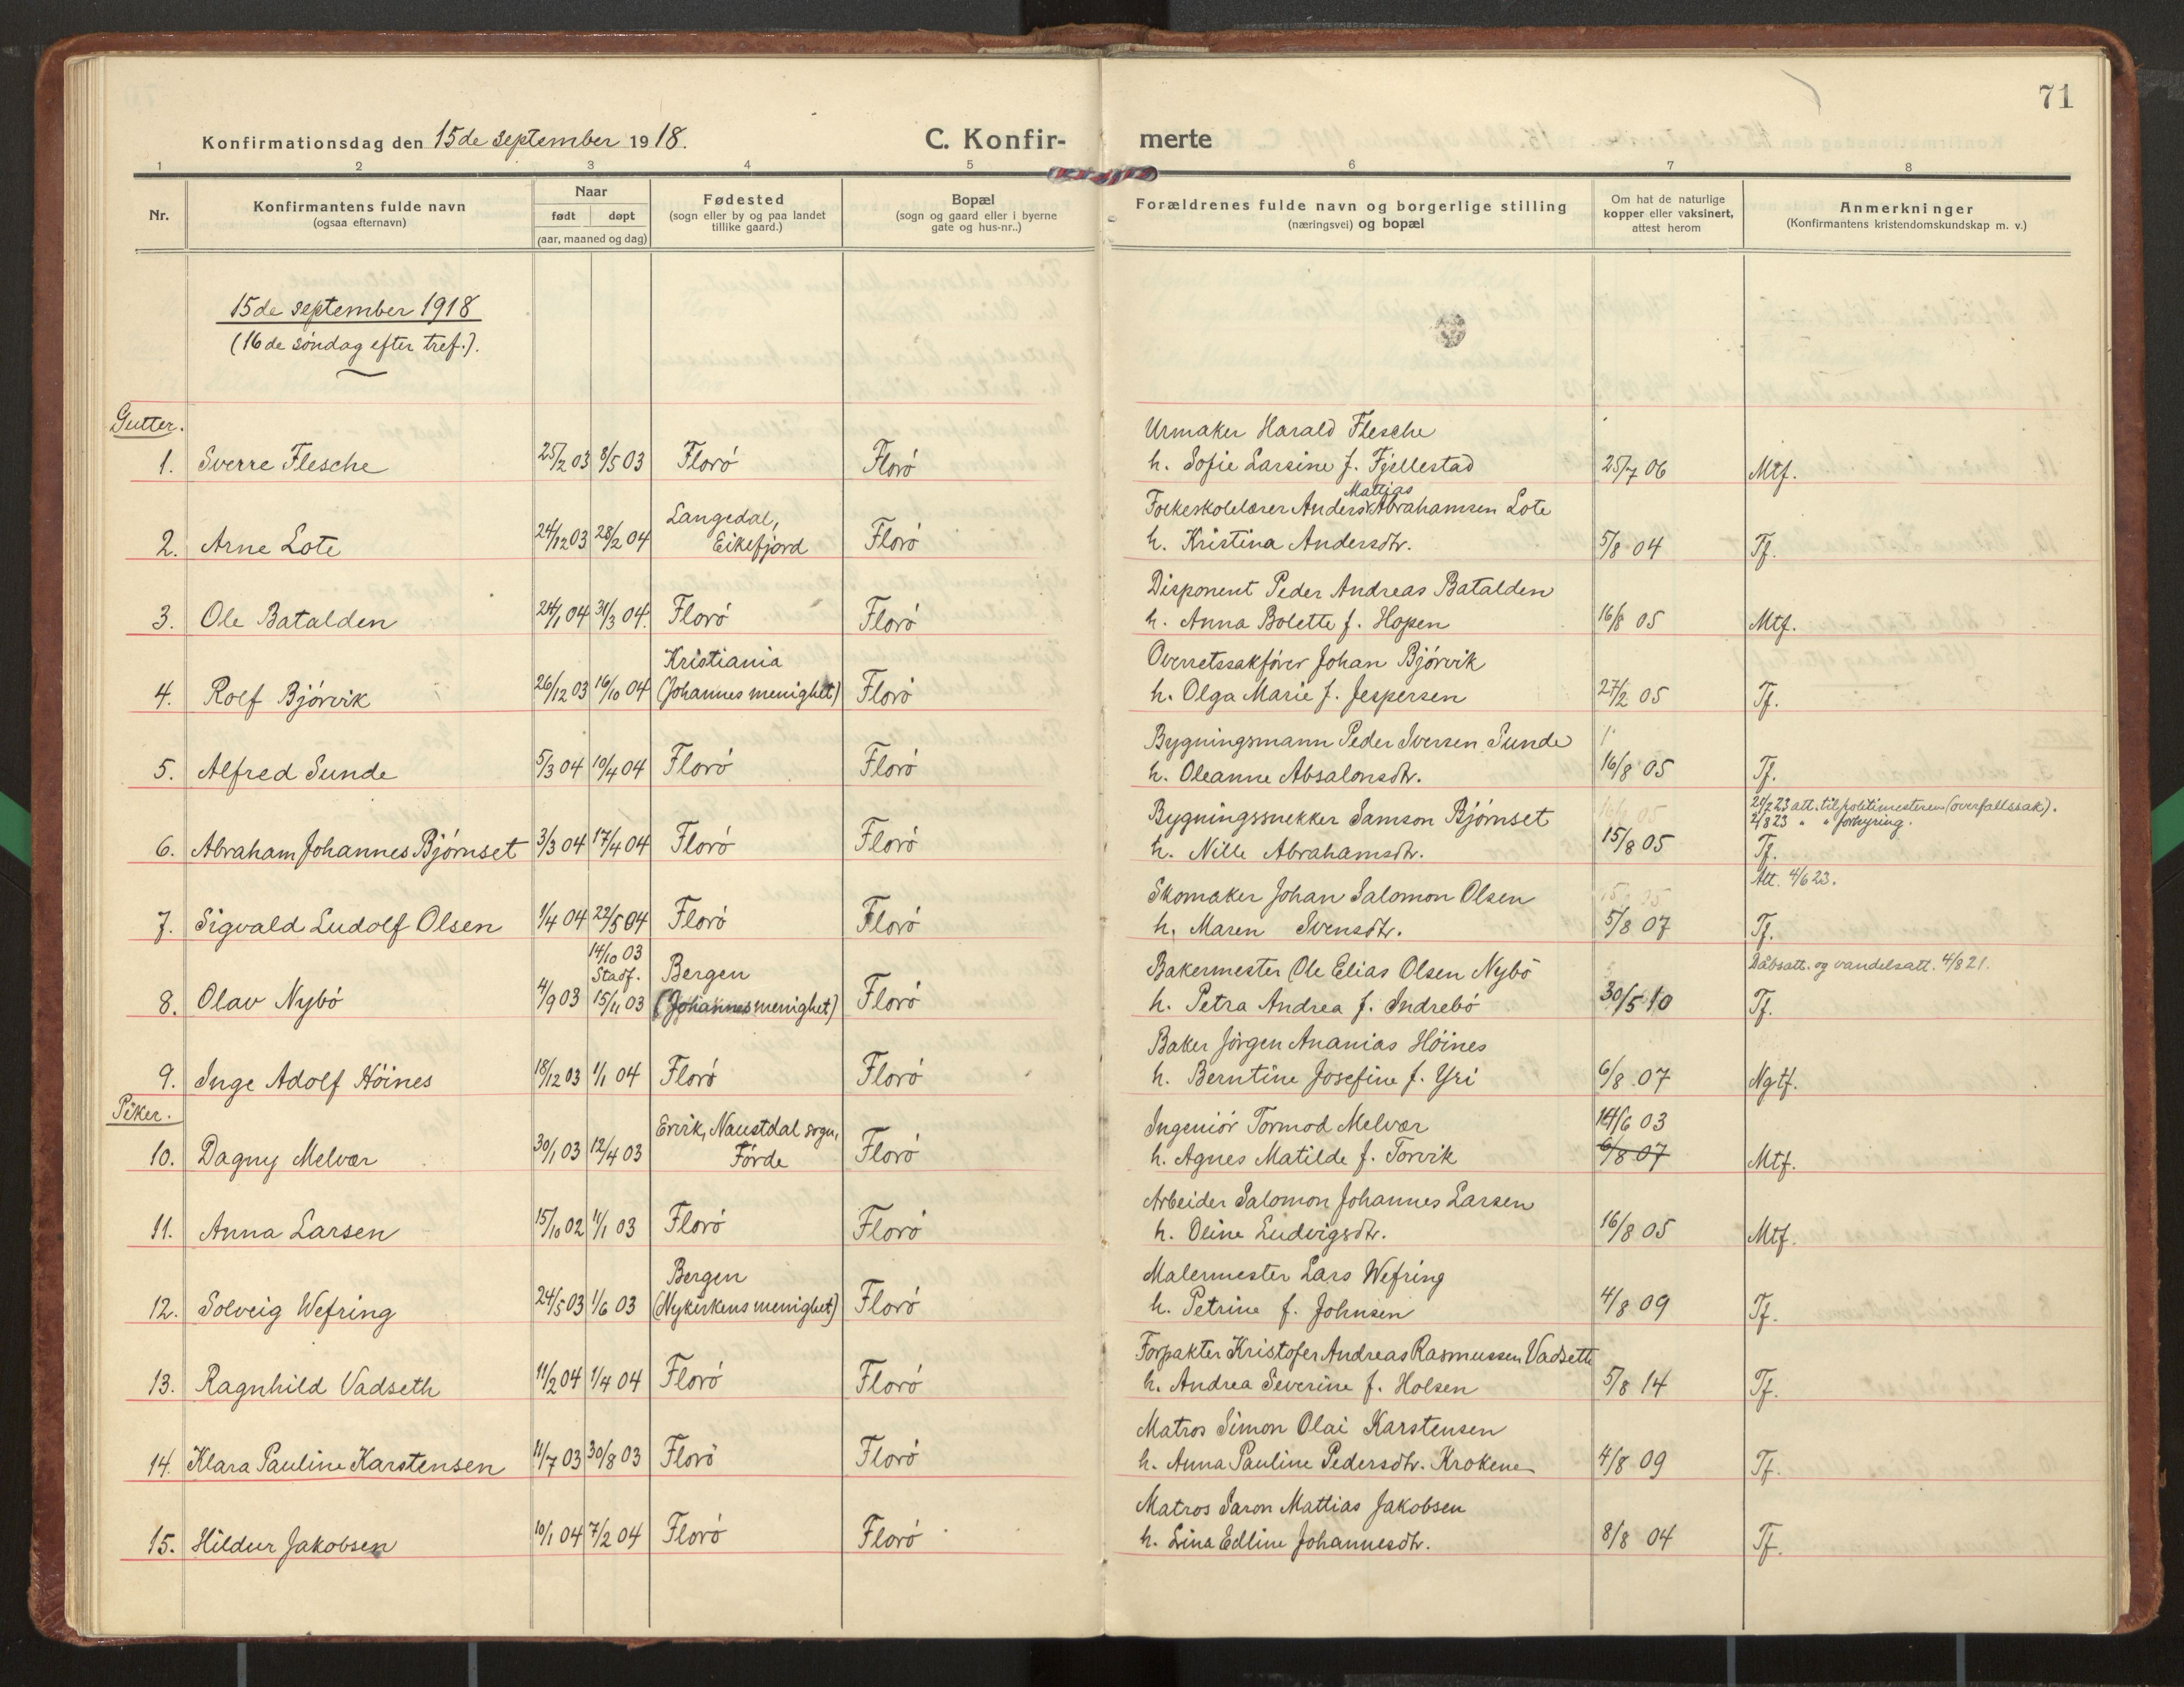 71
Konfirmationsdag den 15de september 1918.
C. Konfir-
merte
1 2 3 4 5 6 7 8
Nr.
Konfirmantens fulde navn
(ogsaa efternavn)
Naar
født døpt
(aar, maaned og dag)
Fødested
(sogn eller by og paa landet
tillike gaard.)
Bopæl
(sogn og gaard eller i byerne
gate og hus-nr..)
Forældrenes fulde navn og borgerlige stilling
(næringsvei) og bopæl
Om hat de naturlige
kopper eller vaksinert,
attest herom
Anmerkninger
(Konfirmantens kristendomskundskap m. v.)
15de september 1918
(16de søndag efter tref.).
Gutter.
Urmaker Harald Flesche
1. Sverre Flesche 25/2 03 8/5 03 Florø Florø h. Sofie Larsine f. Fjellestad 25/7 06 Mtf.
Mattias
Langedal, Folkeskolelærer Anders Abrahamsen Lote
2. Arne Lote 24/12 03 28/2 04 Eikefjord Florø h. Kristina Andersdtr. 5/8 04 Tf.
Disponent Peder Andreas Batalden
3. Ole Batalden 24/1 04 31/3 04. Florø Florø h. Anna Bolette f. Hopen 16/8 05 Mtf.
Kristiania Overretssakfører Johan Bjørvik
4. Rolf Bjørvik 26/12 03 16/10 04 (Johannes menighet) Florø h. Olga Marie f. Jespersen 27/2 05 Tf.
Bygningsmann Peder Iversen Sunde
5. Alfred Sunde 5/3 04 10/4 04 Florø Florø h. Oleanne Absalonsdtr. 16/8 05 Tf.
20/7 23 att. til politimesteren (overfallssak).
Bygningssnekker Samson Bjørnset 2/8 23 " " forhyring.
6. Abraham Johannes Bjørnset 3/3 04 17/4 04 Florø Florø h. Nille Abrahamsdtr. 15/8 05 Tf.
Skomaker Johan Salomon Olsen Att. 4/6 23.
7. Sigvald Ludolf Olsen 1/4 04 22/5 04 Florø Florø h. Maren Svensdtr. 5/8 07 Tf.
14/10 03
Stadf. Bergen Bakermester Ole Elias Olsen Nybø Dåbsatt. og vandelsatt. 4/8 21.
8. Olav Nybø 4/9 03 15/11 03 (Johannes menighet) Florø h. Petra Andrea f. Indrebø 30/5 10 Tf.
Baker Jørgen Ananias Høines
9. Inge Adolf Høines 18/12 03 1/1 04 Florø Florø h. Berntine Josefine f. Yri 6/8 07 Ngtf.
Piker.
Ervik, Naustdal sogn, Ingeniør Tormod Melvær 14/6 03
10. Dagny Melvær 30/1 03 12/4 03 Førde Florø h. Agnes Matilde f. Torvik 6/8 07 Mtf.
Arbeider Salomon Johannes Larsen
11. Anna Larsen 15/10 02 11/1 03 Florø Florø h. Oline Ludvigsdtr. 16/8 05 Mtf.
Bergen Malermester Lars Wefring
12. Solveig Wefring 24/5 03 1/6 03 (Nykirkens menighet) Florø h. Petrine f. Johnsen 4/8 09 Tf.
Forpakter Kristofer Andreas Rasmussen Vadseth
13. Ragnhild Vadseth 11/2 04 1/4 04 Florø Florø h. Andrea Severine f. Holsen 5/8 14 Tf.
Matros Simon Olai Karstensen
14. Klara Pauline Karstensen 11/7 03 30/8 03 Florø Florø h. Anna Pauline Pedersdtr. Krokene 4/8 09 Tf.
Matros Saron Mattias Jakobsen
15. Hildur Jakobsen 10/1 04 7/2 04 Florø Florø h. Lina Edline Johannesdtr. 8/8 04 Tf.